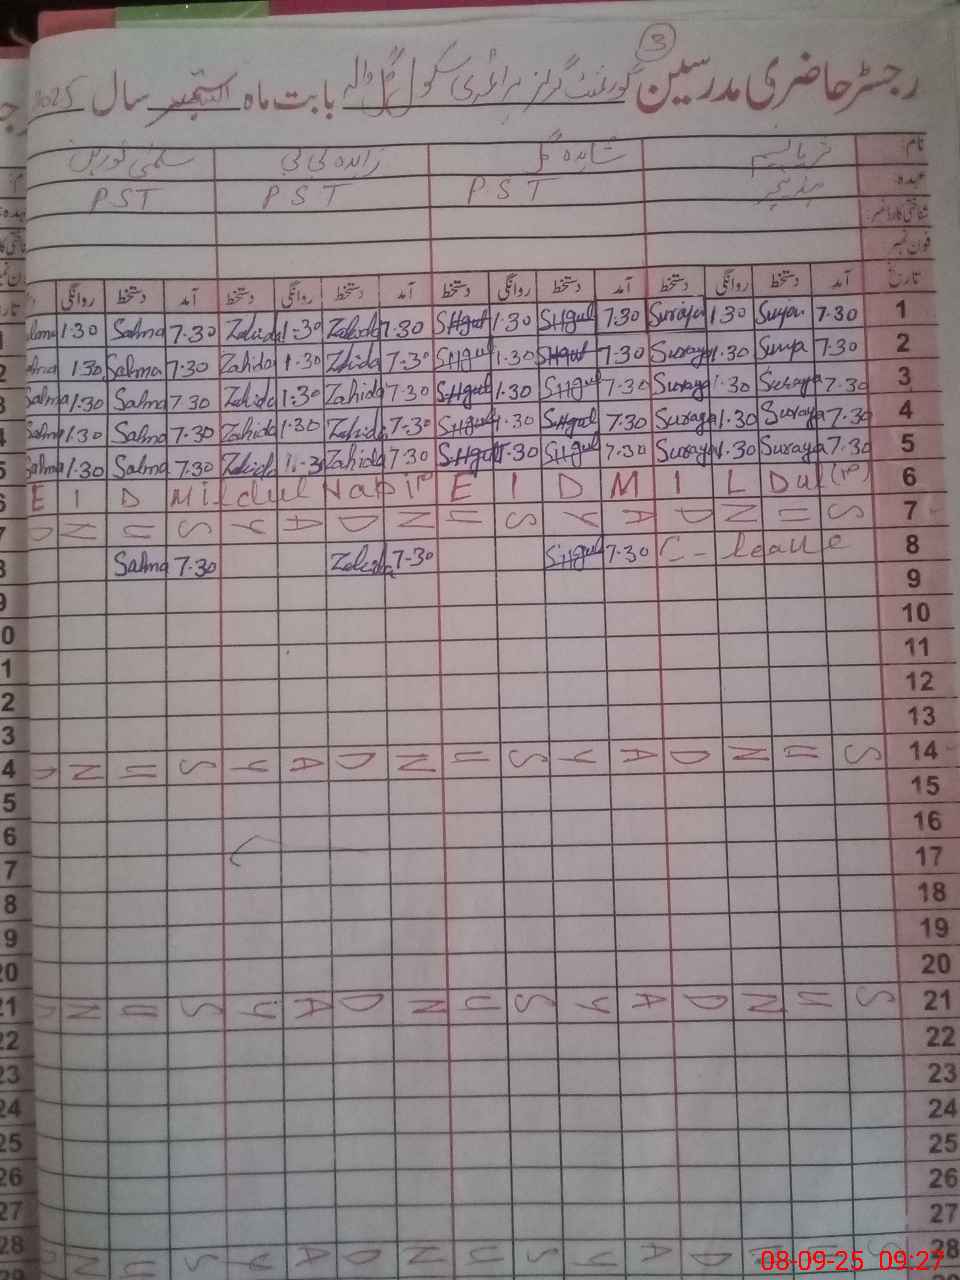 3
رجسٹر حاضری مدرسین گورنمنٹ گرلز پرائمری سکول گل والہ بابت ماہ ستمبر سال 2025
نام: ثریا نسیم شاہدہ گل زاہدہ بی بی سلمیٰ نورین
عہدہ: ہیڈ ٹیچر PST PST PST
شناختی کارڈ نمبر:
فون نمبر:
تاریخ آمد دستخط روانگی دستخط آمد دستخط روانگی دستخط آمد دستخط روانگی دستخط آمد دستخط روانگی
1 7.30 Suraya 1.30 Suraya 7.30 SHgul 1.30 SHgul 7.30 Zahida 1:30 Zahida 7.30 Salma 1.30 Salma
2 7.30 Surya 1.30 Suraya 7.30 SHgul 1.30 SHgul 7.30 Zahida 1.30 Zahida 7.30 Salma 1.30 Salma
3 7.30 Suraya 1.30 Suraya 7.30 SHgul 1.30 SHgul 7.30 Zahida 1:30 Zahida 7.30 Salma 1.30 Salma
4 7.30 Suraya 1.30 Suraya 7.30 SHgul 1.30 SHgul 7.30 Zahida 1.30 Zahida 7.30 Salma 1.30 Salma
5 7.30 Suraya 1.30 Suraya 7.30 SHgul 1.30 SHgul 7.30 Zahida 1.30 Zahida 7.30 Salma 1.30 Salma
E I D Miladul Nabi E I D M I L Dul 6
7 S U N D A Y S U N D A Y S U N D
8 C-leave 7.30 SHgul 7.30 Zahida 7.30 Salma
9
10
11
12
13
14 S U N D A Y S U N D A Y S U N D
15
16
17
18
19
20
21 S U N D A Y S U N D A Y S U N D
22
23
24
25
26
27
28 S U N D A Y S U N D A Y S U N D
08-09-25 09:27